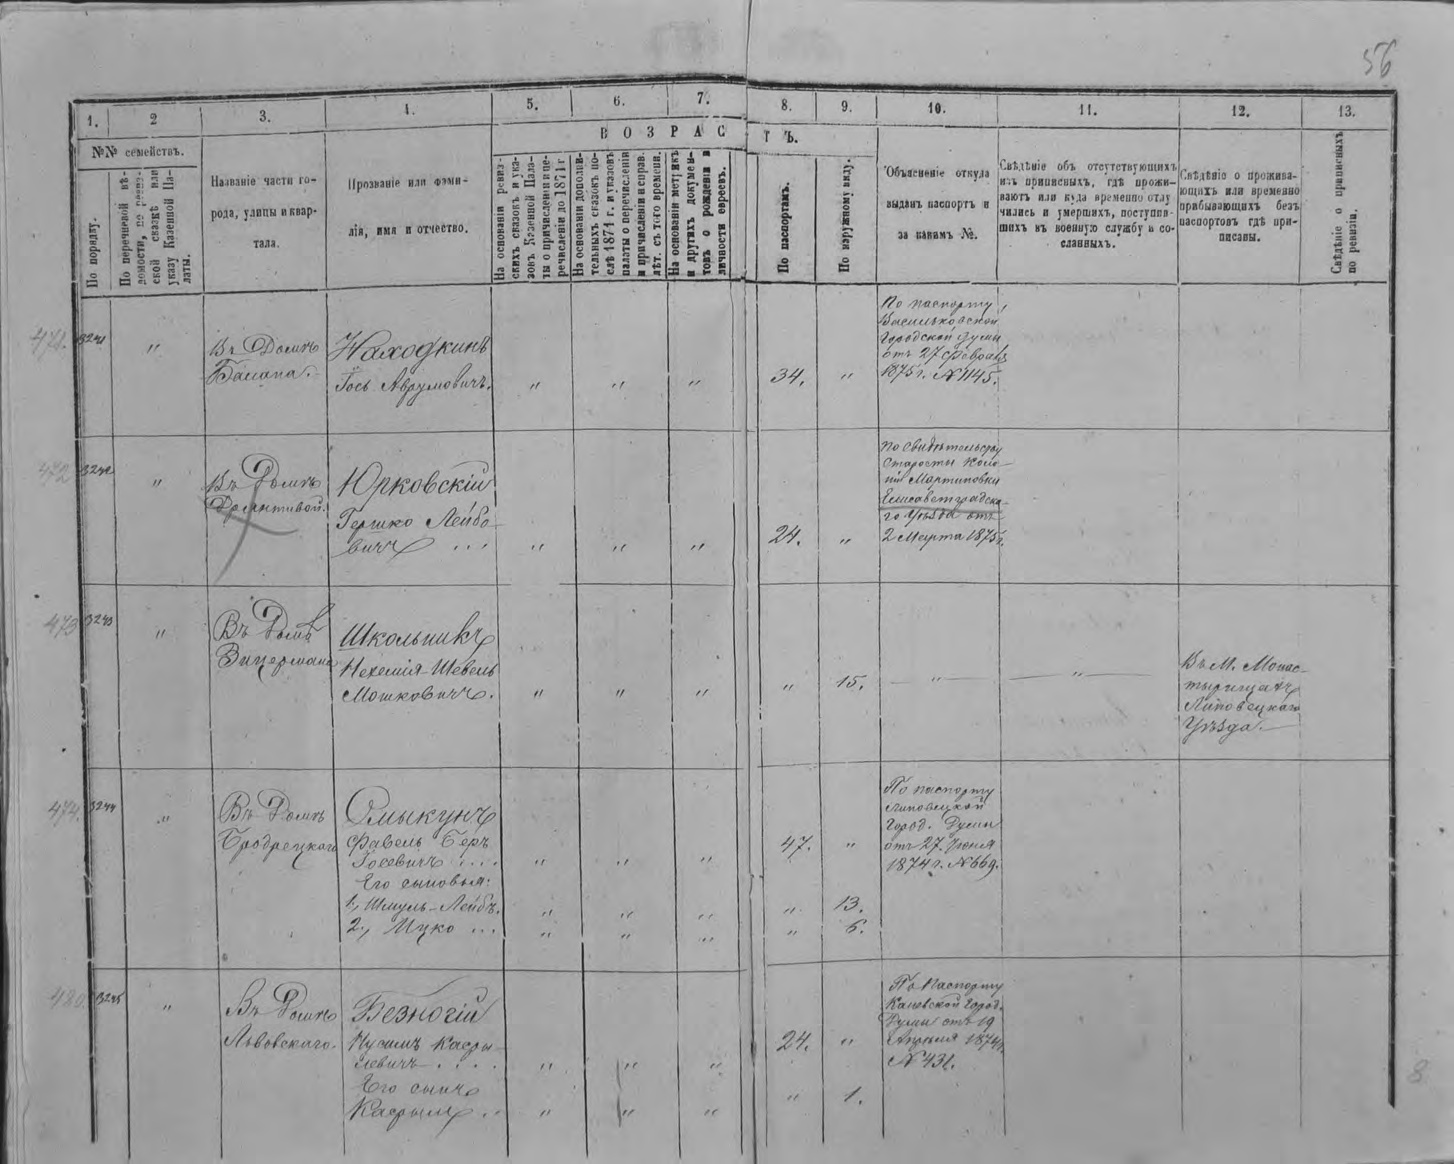 56
1. 2 3. 4. 5. 6. 7. 8. 9. 10. 11. 12. 13.
ВОЗРАСТЪ.
№№ семействъ.
По порядку.
По перечневой вѣ-
домости, по ревиз-
ской сказкѣ или
указу Казенной Па-
латы.
Названіе части го-
рода, улицы и квар-
тала.
Прозваніе или фами-
лія, имя и отчество.
На основаніи ревиз-
скихъ сказокъ и ука-
зовъ Казенной Пала-
ты о причисленіи и пе-
речисленіи до 1874 г
На основаніи дополни-
тельныхъ сказокъ по-
слѣ 1874 г. и указовъ
палаты о перечисленіи
и причисленіи и справ.
лѣт. съ того времени.
На основаніи метрикъ
и другихъ докумен-
товъ о рожденіи и
личности евреевъ.
По паспортамъ.
По наружному виду.
Объясненіе откуда
выданъ паспортъ и
за какимъ №.
Свѣдѣніе объ отсутствующихъ
изъ приписныхъ, гдѣ прожи-
ваютъ или куда временно отлу
чились и умершихъ, поступив-
шихъ въ военную службу и со-
сланныхъ.
Свѣдѣніе о прожива-
ющихъ или временно
прибывающихъ безъ
паспортовъ гдѣ при-
писаны.
Свѣдѣніе о приписныхъ
по ревизіи.
471. 3241 "
Въ Домѣ
Балапа.
Находкинъ
Іось Аврумовичъ. " " " 34. "
По паспорту
Васильковской
Городской Думы
отъ 27 Февраля
1875 г. № 1145.
472 3242 "
Въ Домѣ
Юрковскій
Гершко Лейбо-
вичъ ... " " " 24. "
По свидѣтельству
Старосты Коло-
ніи Мартиновки
Елисаветградска-
го Уѣзда отъ
2 Марта 1875 г.
473 3243 "
Въ Домѣ
Зицермана
Школьникъ
Нехемія-Шевель
Мошковичъ. " " " " 15. " "
Въ М. Монас-
тырищахъ
Липовецкаго
Уѣзда.
474. 3244 "
Въ Домѣ
Бродрецкаго
Смыкунъ
Файвель Беръ
Іосевичъ .... " " " 47. "
Его сыновья:
1, Шмуль-Лейбъ. " " " " 13.
2, Ицко ... " " " " 6.
По паспорту
Липовецкой
Город. Думы
отъ 27. Іюня
1874 г. № 669.
480. 3245 "
Въ Домѣ
Львовскаго.
Безногій
Нусимъ Касры-
елевичъ .... " " " 24. "
Его сынъ
Касрыль .. " " " " 1.
По Паспорту
Каневской Город.
Думы отъ 19
Апрѣля 1874 г.
№ 431.
8